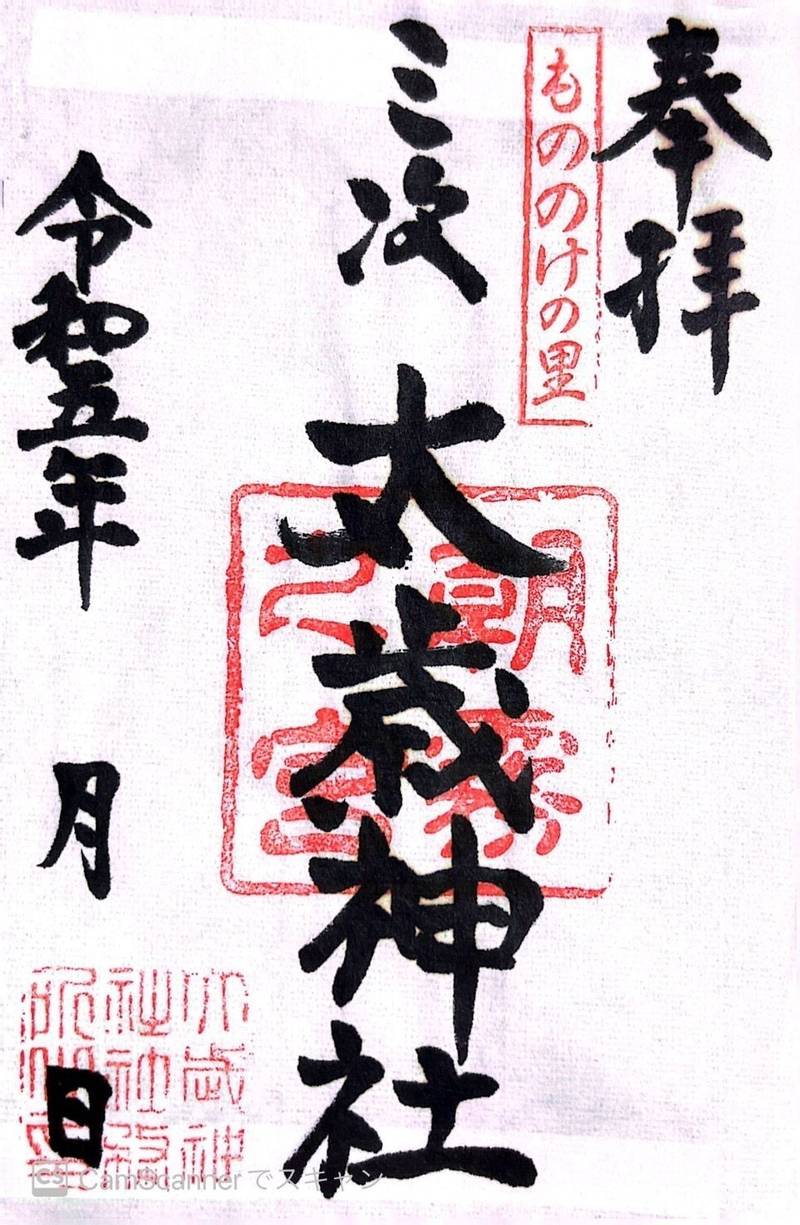 奉拝
もののけの里
三次
太歳神社
朝霧
宮
令和五年
月
日
CS CamScanner でスキャン